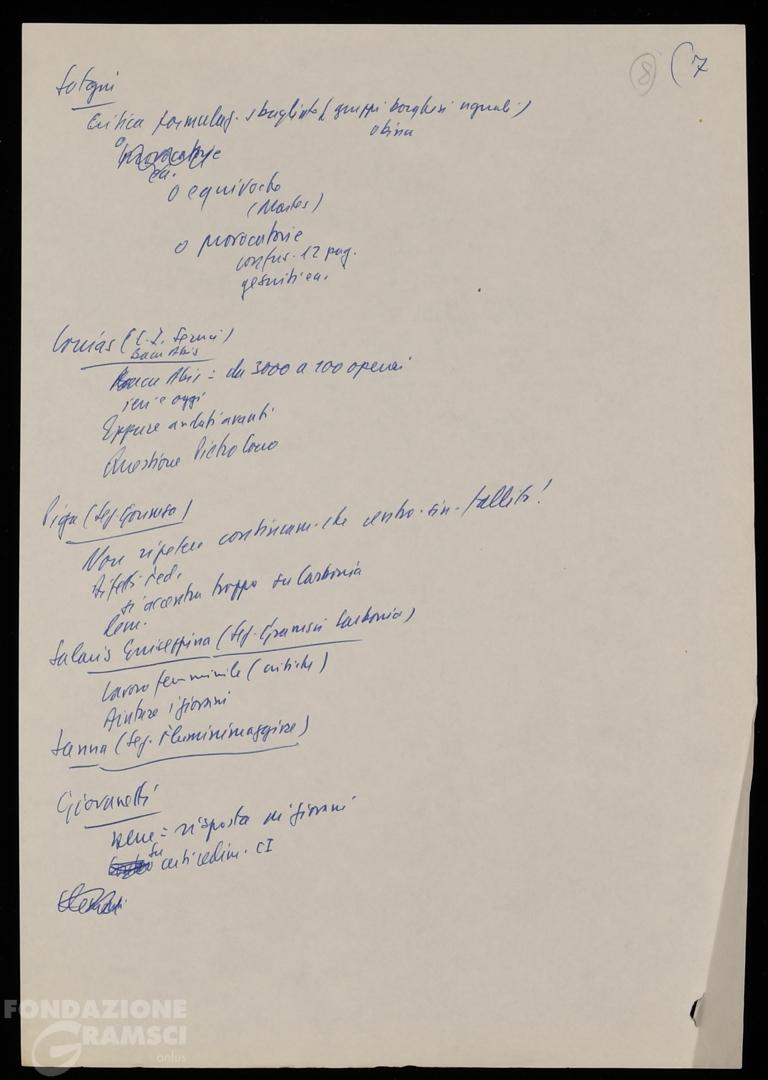 8 (7
Critica formulaz. sbagliate (gruppi borghesi uguali)
o equivoche
(Marras)
o provocatorie
confus. 12 pag.
gesuitica.
Bacu Abis
Bacu Abis = da 3000 a 100 operai
ieri e oggi
Eppure andati avanti
Questione Pietro Cocco
Piga (Seg. Gonnesa)
Non ripetere continuam. che centro-sin. fallito!
Difetti Fed.
Si accentra troppo su Carbonia
Salaris Giuseppina (Seg. Gramsci Carbonia)
Lavoro femminile (critiche)
Aiutare i giovani
Sanna (Seg. Fluminimaggiore)
Giovanetti
Bene = risposta ai giovani
su certi cedim. CI
FONDAZIONE
GRAMSCI
onlus